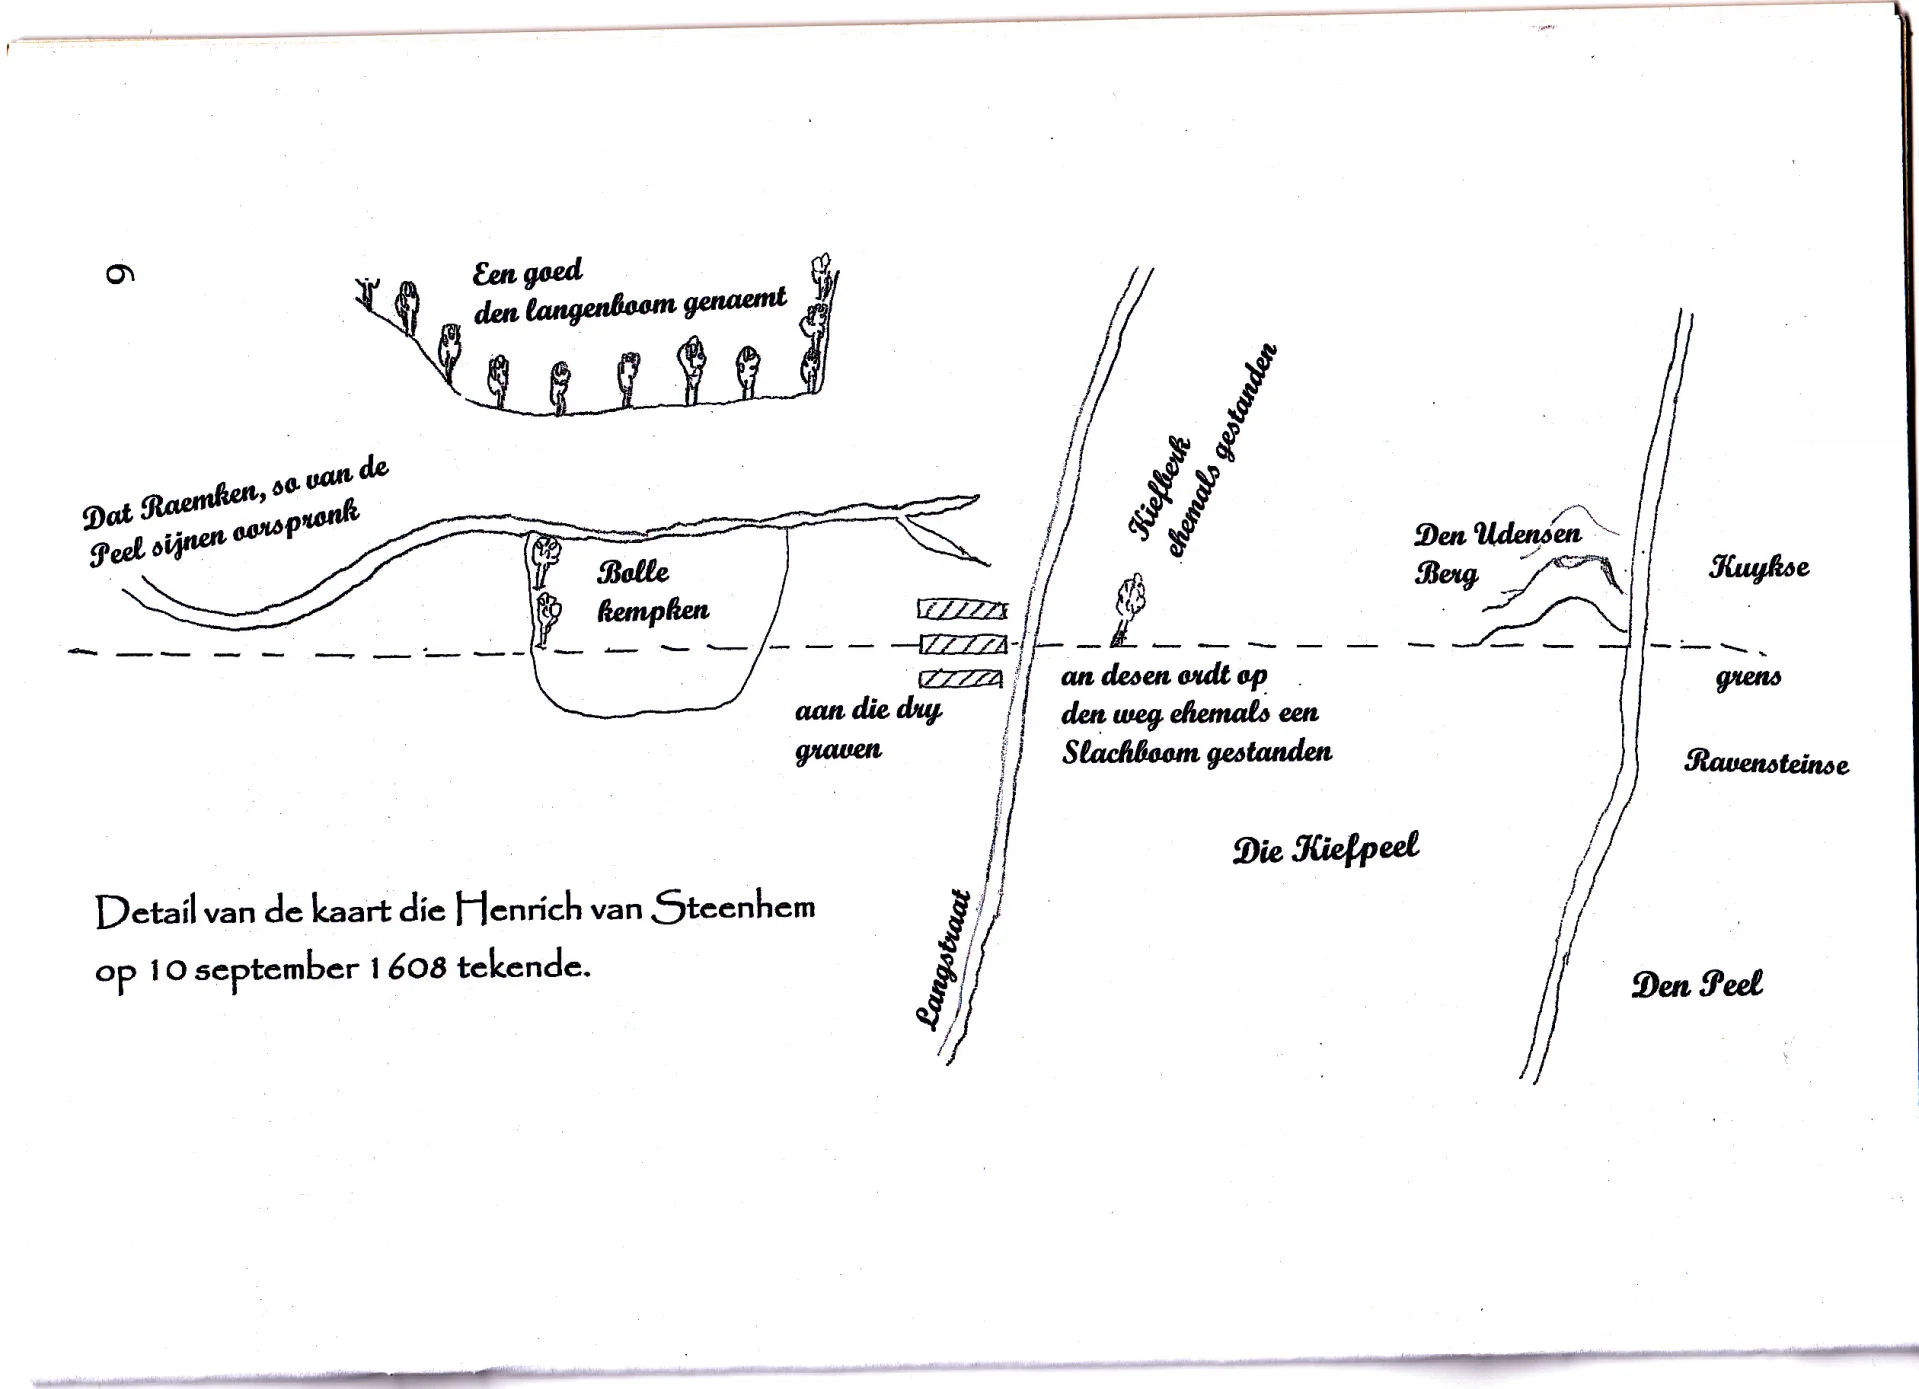 6
Een goed
den langenboom genaemt
Dat Raemken, so van de
Peel sijnen oorspronk
Bolle
kempken
Kiefberk
ehemals gestanden
Den Udensen
Berg
Kuykse
grens
Ravensteinse
aan die dry
graven
an desen ordt op
den weg ehemals een
Slachboom gestanden
Die Kiefpeel
Langstraat
Den Peel
Detail van de kaart die Henrich van Steenhem
op 10 september 1608 tekende.